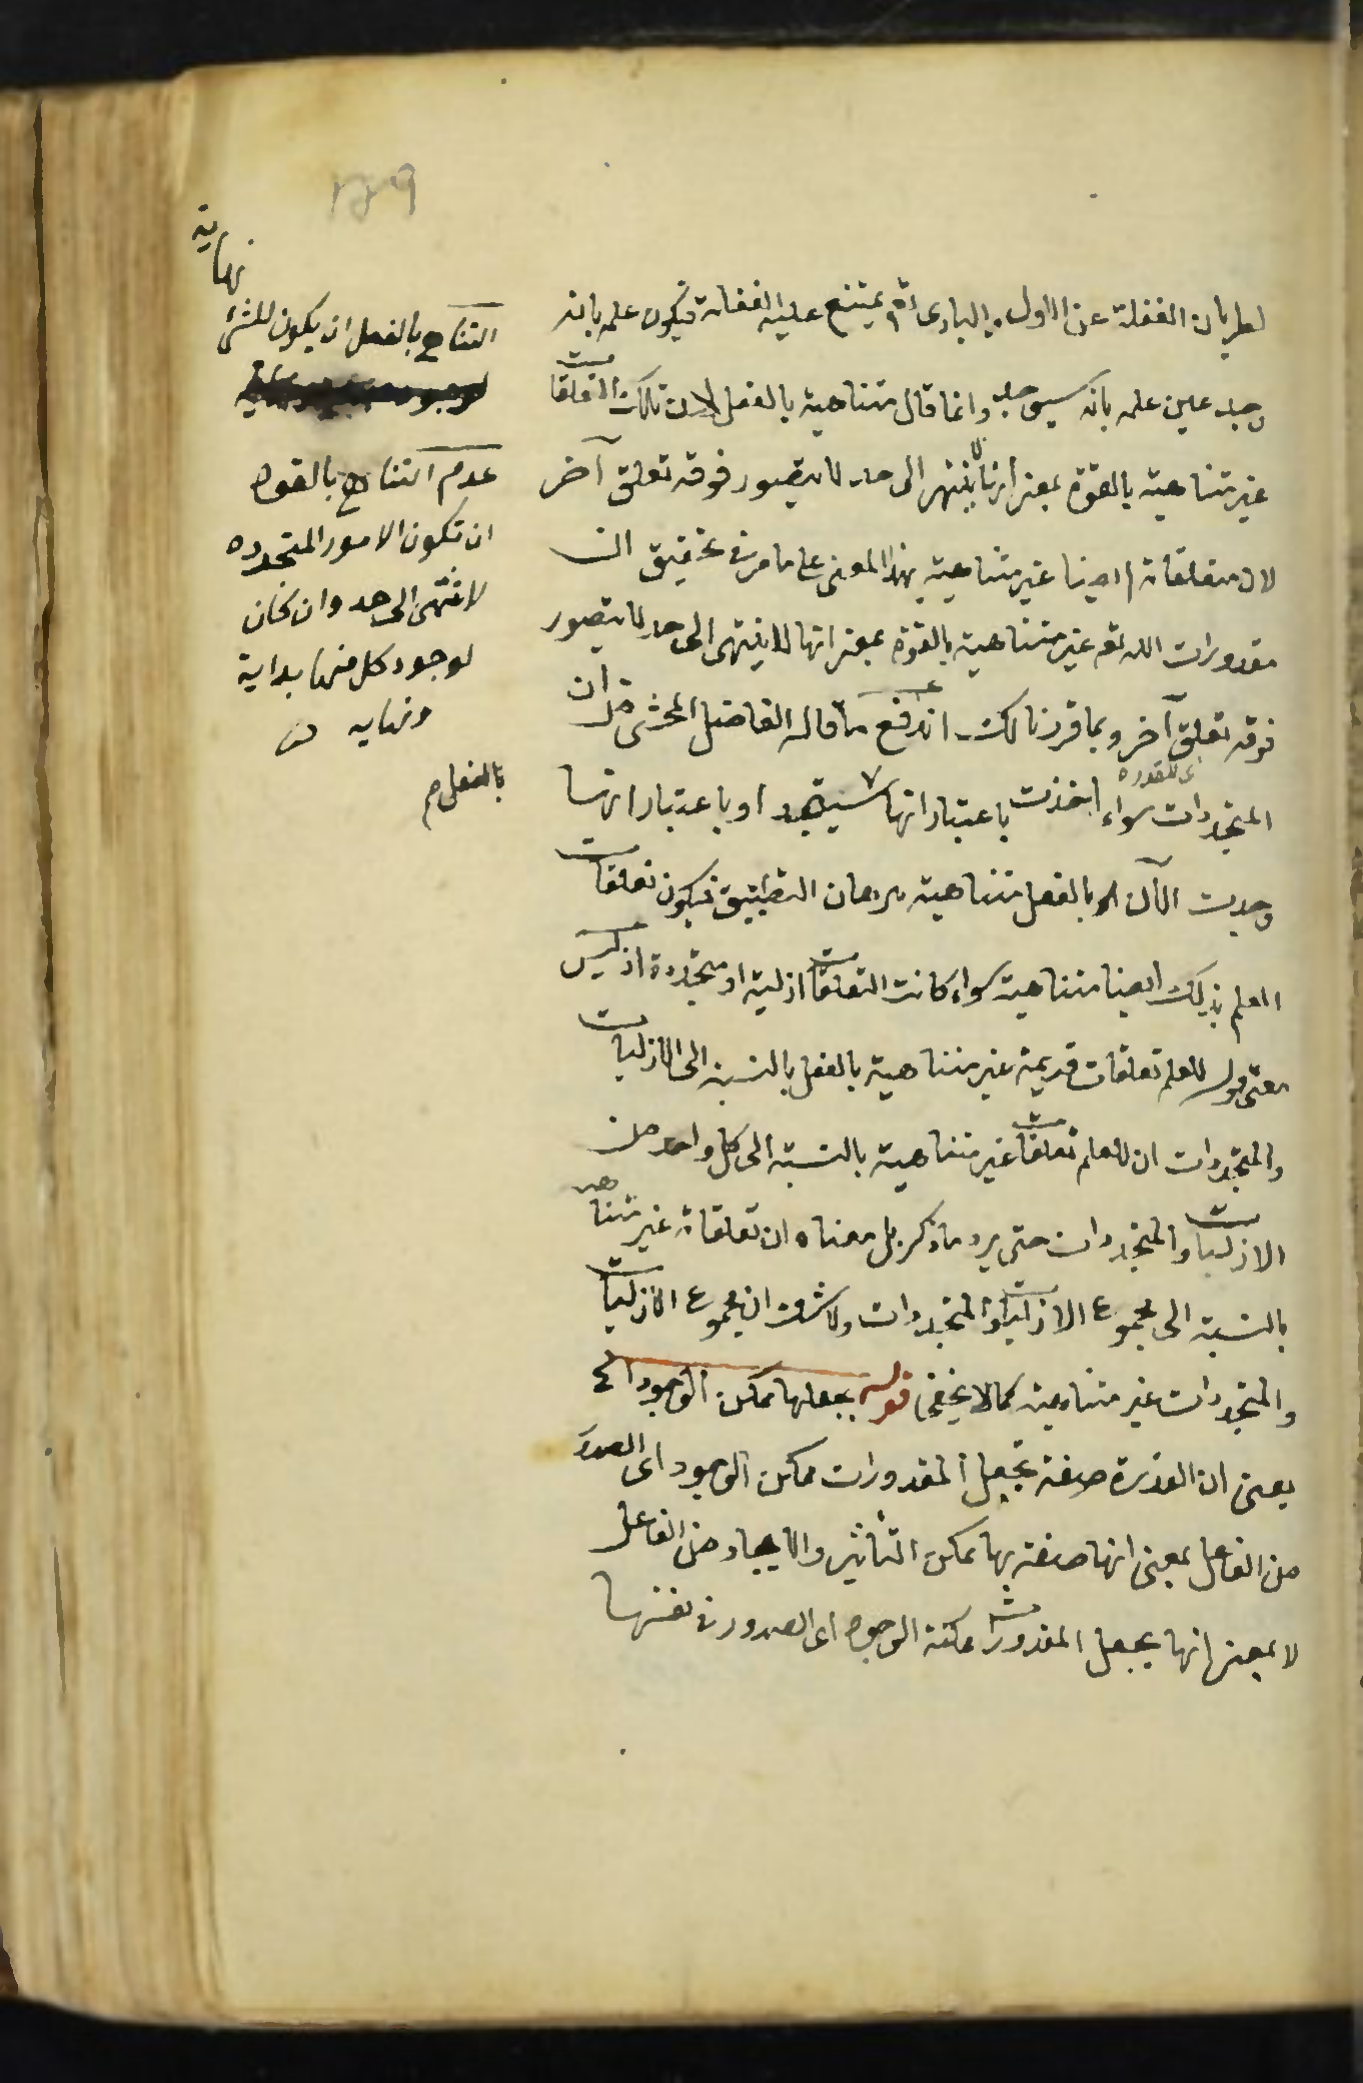 ١٤٩
لطريان الغفلة عن الاول والبارى تع يمتنع عليه الغفلة فيكون علمه بانه
وجد عين علمه بانه سيوجد وانما قال متناهية بالفعل لان تلك التعلقات
غير متناهية بالقوة بمعنى انها لا ينتهى الى حد لا يتصور فوقه تعلق آخر
لان متعلقاته ايضا غير متناهية بهذا المعنى على ما مر فى تحقيق ان
مقدورات الله تع غير متناهية بالقوة بمعنى انها لا ينتهى الى حد لا يتصور
فوقه تعلق آخر وبما قررنا لك اندفع ما قاله الفاضل المحشى من ان
اى للقدرة
المتجددات سواء اخذت باعتبار انها ستتجدد او باعتبار انها
وجدت الآن بالفعل متناهية ببرهان التطبيق فيكون تعلقات
العلم بذلك ايضا متناهية سواء كانت التعلقات ازلية او متجددة اذ ليس
معنى قوله للعلم تعلقات قديمة غير متناهية بالفعل بالنسبة الى الازليات
والمتجددات ان للعلم تعلقات غير متناهية بالنسبة الى كل واحد من
الازليات والمتجددات حتى يرد ما ذكر بل معناه ان تعلقاته غير متناهية
بالنسبة الى مجموع الازليات والمتجددات ولا شك ان مجموع الازليات
والمتجددات غير متناهية كما لا يخفى قوله بجعلها ممكن الوجود الخ
يعنى ان القدرة صفة تجعل المقدورات ممكن الوجود اى الصدور
من الفاعل بمعنى انها صفة بها يمكن التأثير والايجاد من الفاعل
لا بمعنى انها يجعل المقدورات ممكنة الوجود اى الصدور فى نفسها
نهاية
التناهى بالفعل ان يكون للشئ
عدم التناهى بالقوه
ان تكون الامور المتجدده
لا تنتهى الى حد وان كان
لوجود كل منها بداية
ونهايه
بالفعل م